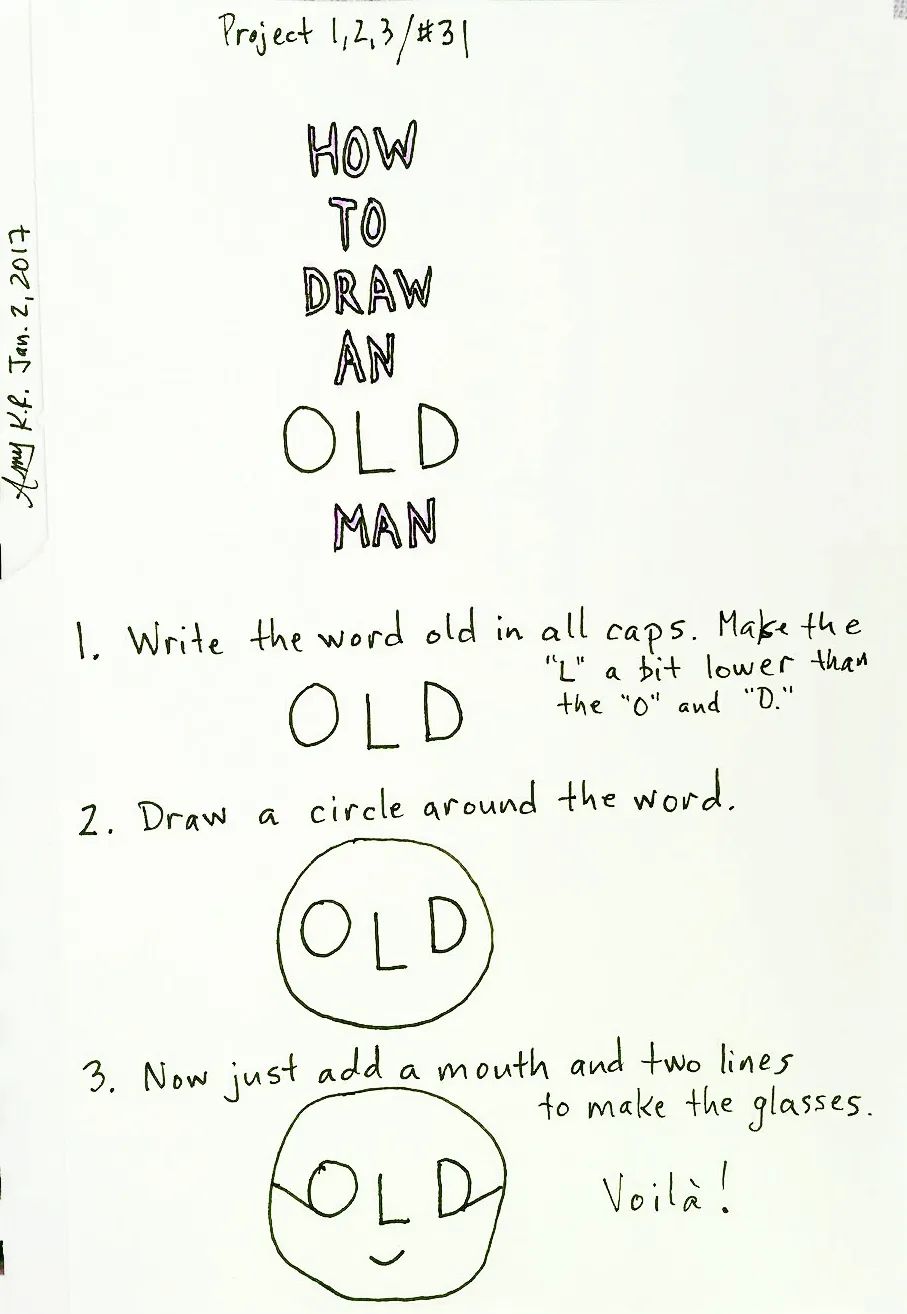 Project 1,2,3/#31
HOW
TO
DRAW
AN
OLD
MAN
Amy K.R. Jan. 2, 2017
1. Write the word old in all caps. Make the
"L" a bit lower than
the "O" and "D."
OLD
2. Draw a circle around the word.
OLD
3. Now just add a mouth and two lines
to make the glasses.
OLD
Voilà!